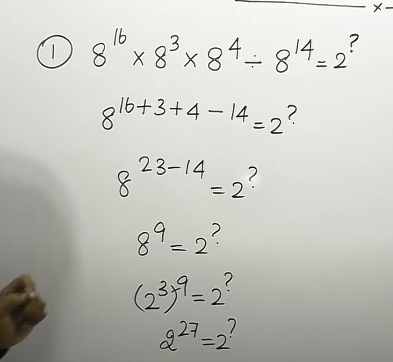 ① 8¹⁶ × 8³ × 8⁴ ÷ 8¹⁴ = 2^?
8^{16+3+4-14} = 2^?
8^{23-14} = 2^?
8⁹ = 2^?
(2³)⁹ = 2^?
2²⁷ = 2^?